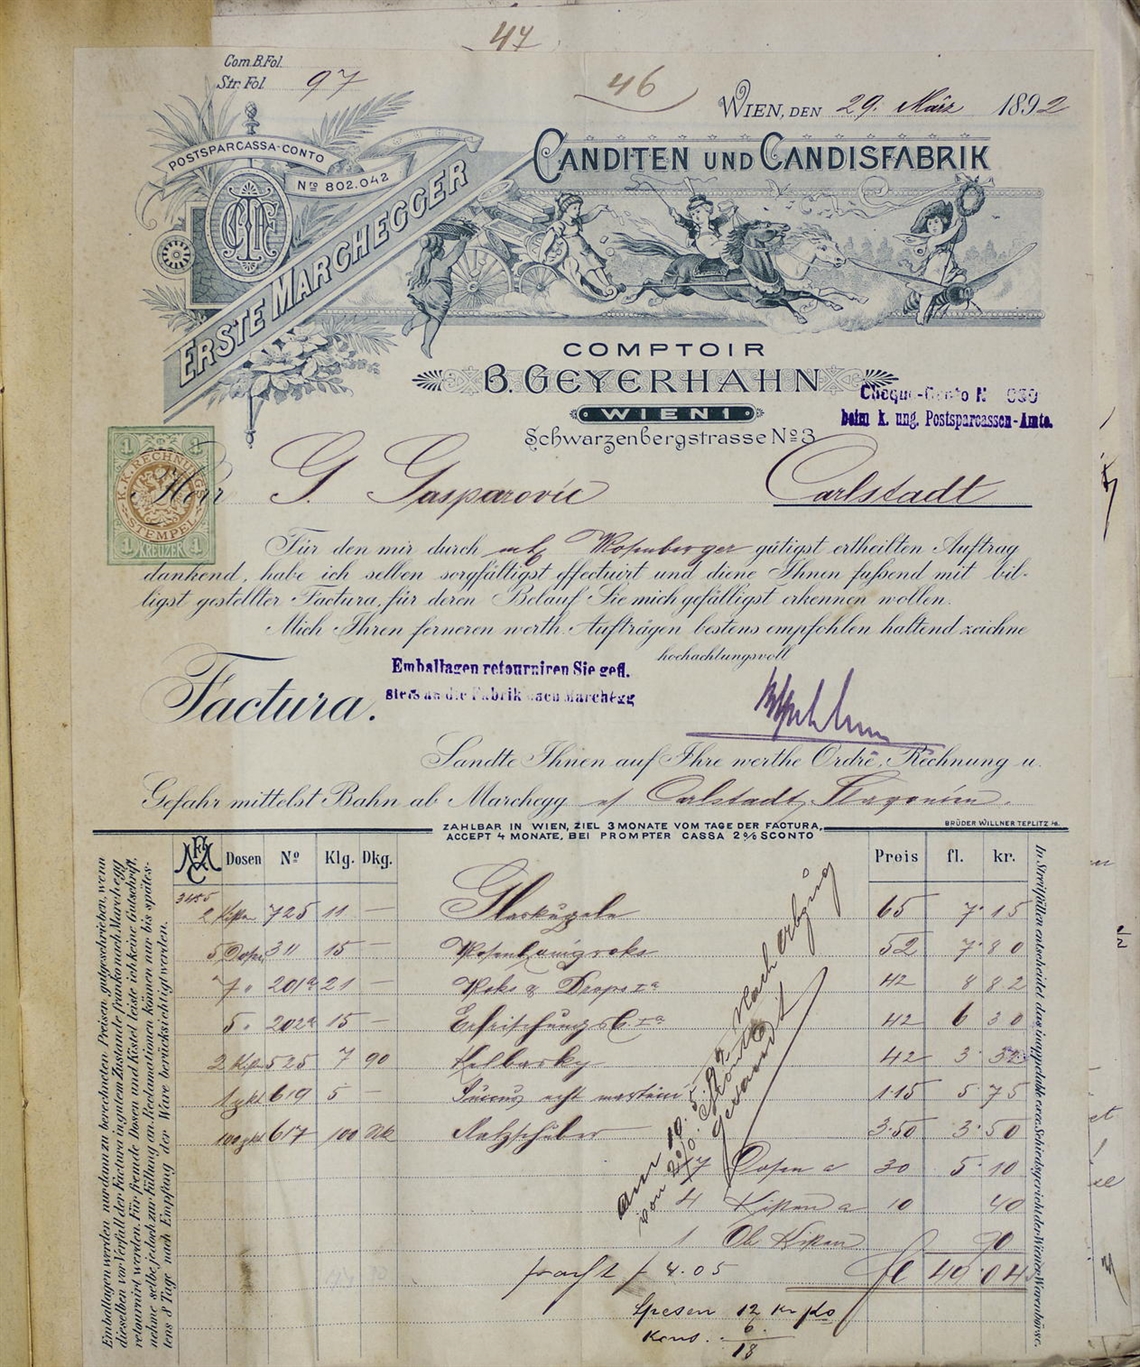 47
46
Com. B. Fol.
Str. Fol. 97
WIEN, DEN 29. März 1892
POSTSPARCASSA-CONTO
Nro 802.042
ERSTE MARCHEGGER
CANDITEN UND CANDISFABRIK
COMPTOIR
B. GEYERHAHN
WIEN 1
Schwarzenbergstrasse No 3
Cheque-Conto N
beim k. ung. Postsparcassen-Amte.
1 1
K.K. RECHNUNGS
STEMPEL
1 KREUZER 1
Herr G. Gasparovic Carlstadt
Für den mir durch Rosenberger gütigst ertheilten Auftrag
dankend, habe ich selben sorgfältigst effectuirt und diene Ihnen fußend mit bil-
ligst gestellter Factura, für deren Belauf Sie mich gefälligst erkennen wollen.
Mich Ihren ferneren werth. Aufträgen bestens empfohlen haltend zeichne
hochachtungsvoll
Emballagen retourniren Sie gefl.
stets an die Fabrik nach Marchegg
Factura.
Sandte Ihnen auf Ihre werthe Ordre, Rechnung u.
Gefahr mittelst Bahn ab Marchegg Carlstadt,
ZAHLBAR IN WIEN, ZIEL 3 MONATE VOM TAGE DER FACTURA,
ACCEPT 4 MONATE, BEI PROMPTER CASSA 2% SCONTO
BRÜDER WILLNER TEPLITZ
Dosen No Klg. Dkg. Preis fl. kr.
2 725 11 — 65 7 15
5 Dosen 311 15 — 52 7 80
7 " 201a 21 — Roks & Drops Ia 42 8 82
5 " 202a 15 — Erfrischungs B. Ia 42 6 30
2 525 7 90 42 3 32
1 619 5 — 1·15 5 75
100 617 100 3·50 3 50
17 Dosen a 30 5·10
4 Kisten a 10 40
1 Kisten 90
fracht f 4.05 fl 40·04
Spesen 12 kr
6
18
Emballagen werden nur dann zu berechneten Preisen gutgeschrieben, wenn
dieselben vor Verfall der Factura in gutem Zustande franko nach Marchegg
retournirt werden. Für fremde Dosen und Kistel leiste ich keine Gutschrift,
nehme selbe jedoch zur Füllung an. Reclamationen können nur bis spätes-
tens 8 Tage nach Empfang der Ware berücksichtigt werden.
In Streitfällen entscheidet das inappelable exec. Schiedsgericht der Wiener Warenbörse.